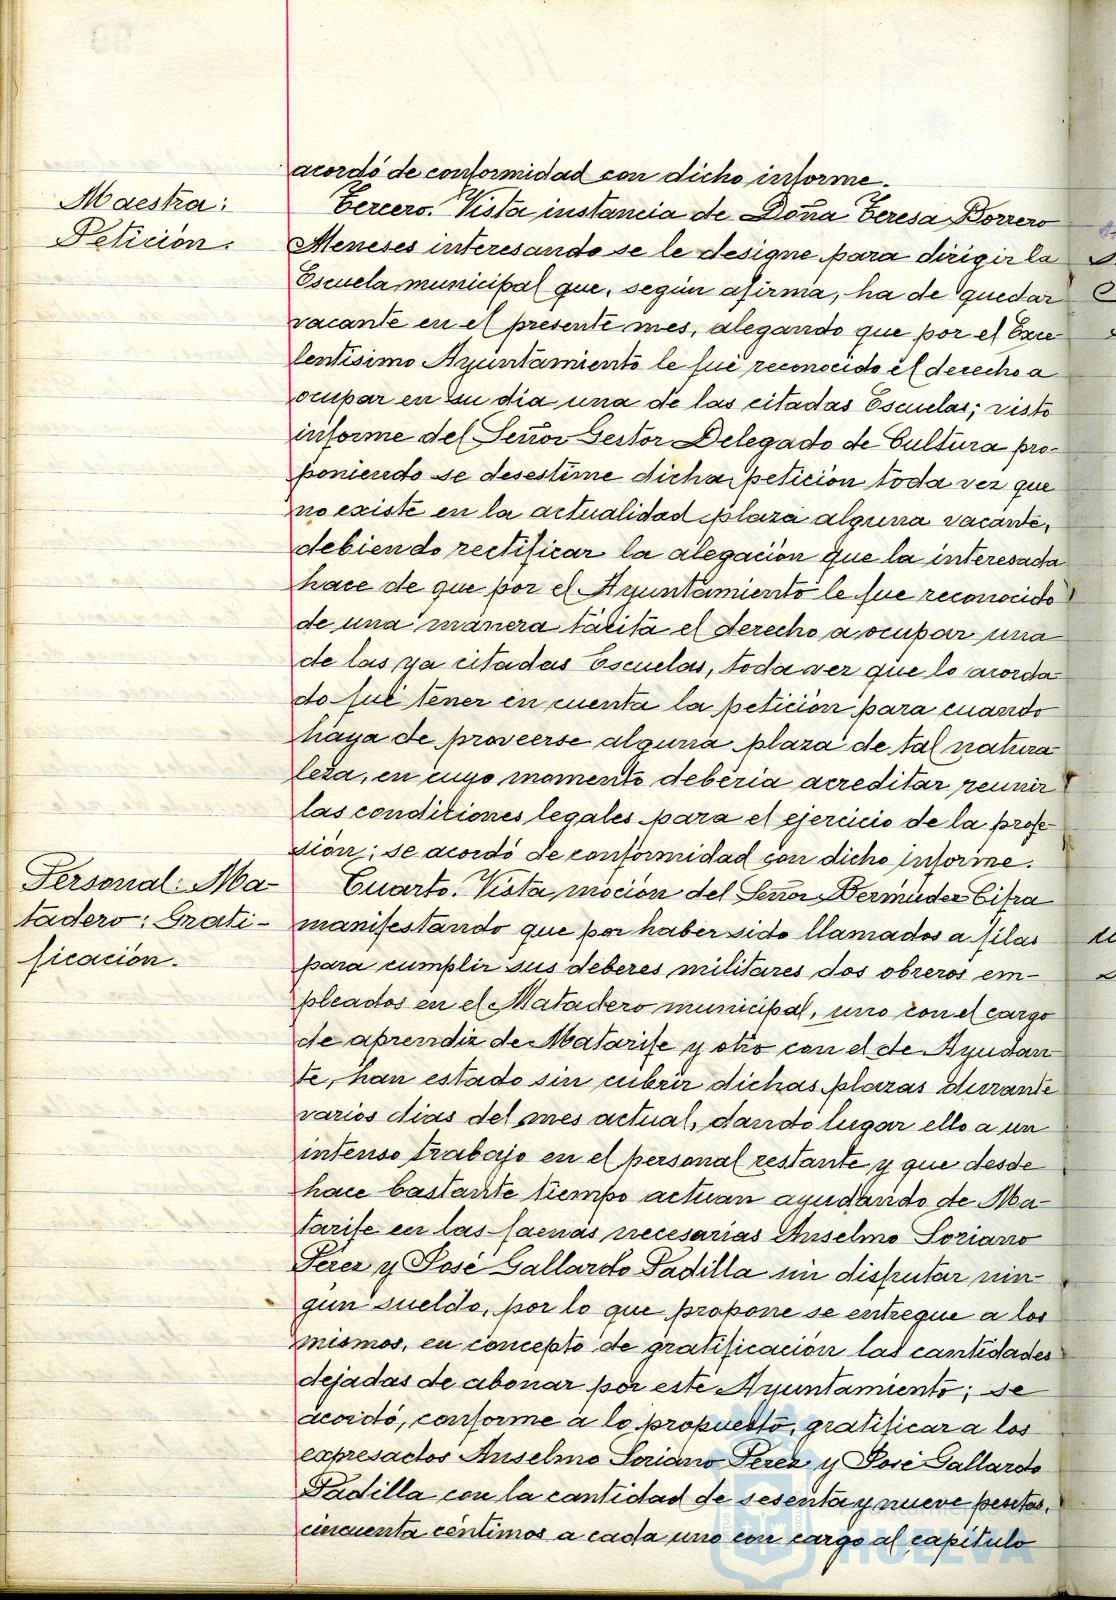 acordó de conformidad con dicho informe.
Maestra:
Petición.
Tercero. Vista instancia de Doña Teresa Borrero
Meneses interesando se le designe para dirigir la
Escuela municipal que, según afirma, ha de quedar
vacante en el presente mes, alegando que por el Exce-
lentísimo Ayuntamiento le fué reconocido el derecho a
ocupar en su día una de las citadas Escuelas; visto
informe del Señor Gestor Delegado de Cultura pro-
poniendo se desestime dicha petición toda vez que
no existe en la actualidad plaza alguna vacante,
debiendo rectificar la alegación que la interesada
hace de que por el Ayuntamiento le fue reconocido
de una manera tácita el derecho a ocupar una
de las ya citadas Escuelas, toda vez que lo acorda-
do fué tener en cuenta la petición para cuando
haya de proveerse alguna plaza de tal natura-
leza, en cuyo momento debería acreditar reunir
las condiciones legales para el ejercicio de la profe-
sión; se acordó de conformidad con dicho informe.
Personal: Ma-
tadero: Grati-
ficación.
Cuarto. Vista moción del Señor Bermúdez Cifra
manifestando que por haber sido llamados a filas
para cumplir sus deberes militares dos obreros em-
pleados en el Matadero municipal, uno con el cargo
de aprendiz de Matarife y otro con el de Ayudan-
te, han estado sin cubrir dichas plazas durante
varios días del mes actual, dando lugar ello a un
intenso trabajo en el personal restante y que desde
hace bastante tiempo actuan ayudando de Ma-
tarife en las faenas necesarias Anselmo Soriano
Pérez y José Gallardo Padilla sin disfrutar nin-
gún sueldo, por lo que propone se entregue a los
mismos, en concepto de gratificación las cantidades
dejadas de abonar por este Ayuntamiento; se
acordó, conforme a lo propuesto, gratificar a los
expresados Anselmo Soriano Pérez y José Gallardo
Padilla con la cantidad de sesenta y nueve pesetas,
cincuenta céntimos a cada uno con cargo al capítulo
HUELVA